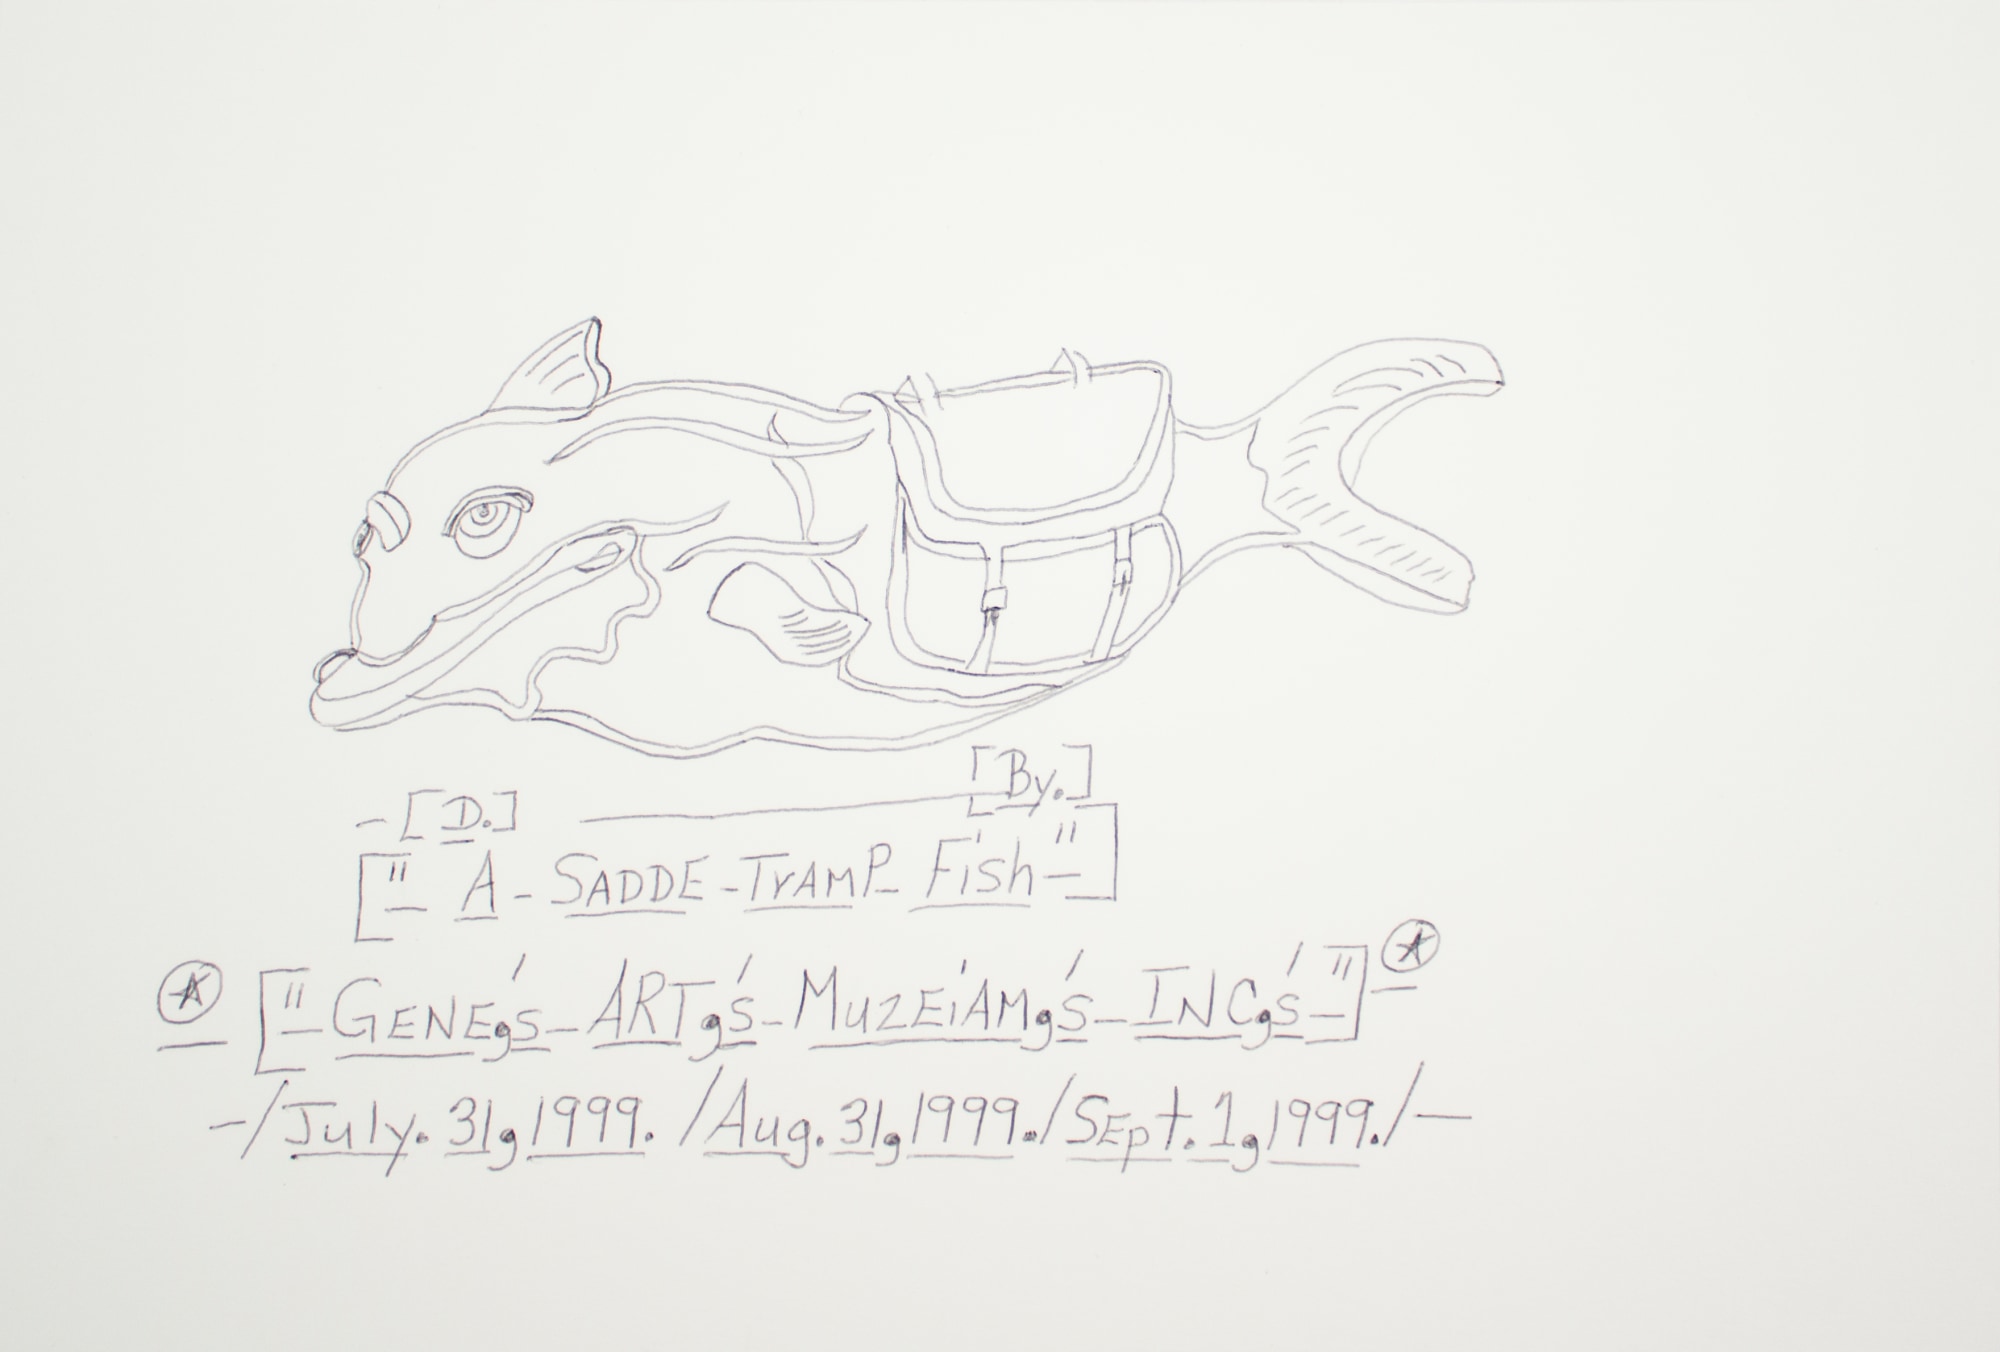 [By.]
-[D.]
[" A - SADDE - TrAMP - Fish - "]
[" - GENE,'s - ART,'s - MuZEiAM,'s - INC,'s - "]
-/July. 31, 1999. /Aug. 31, 1999./SEpt. 1, 1999./-